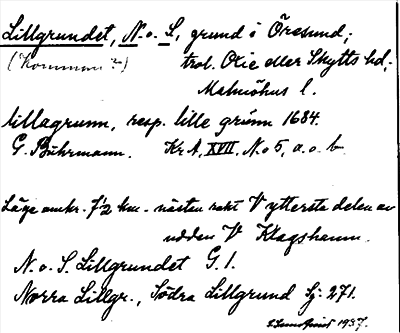 Lillgrundet, N. o. S., grund i Öresund;
(Kommun?) trol. Oxie eller Skytts hd,
Malmöhus l.
lillagrunn, resp. lille grünn 1684.
G. Buhrmann. KrA, XVII, No 5, a. o. b.
Läge omkr. 7½ km. nästan rakt V yttersta delen av
udden V Klagshamn.
N. o. S. Lillgrundet G. 1.
Norra Lillgr., Södra Lillgrund Sj. 271.
1937.